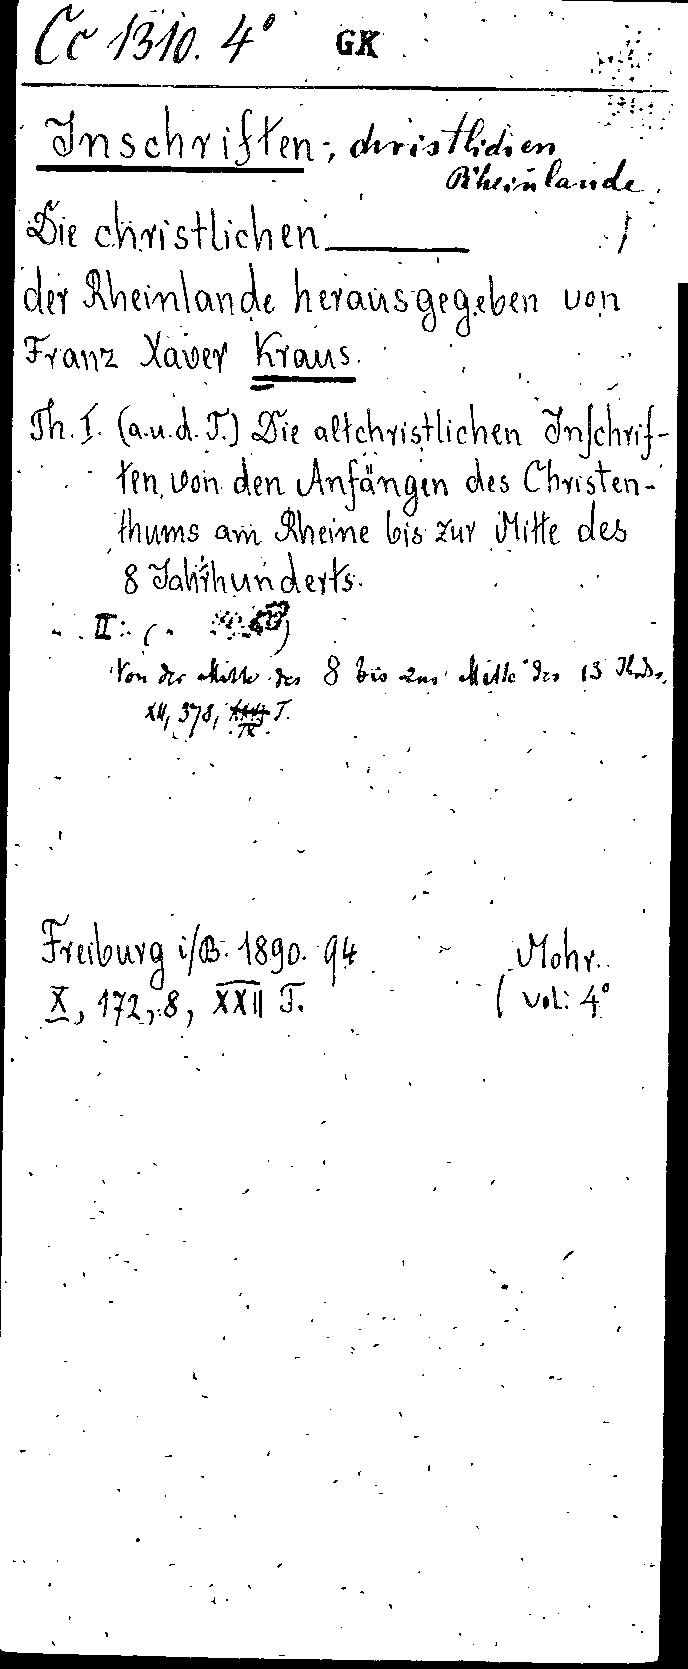 Cc 1310. 4° GK
Inschriften, christlichen
Rheinlande
Die christlichen
der Rheinlande herausgegeben von
Franz Xaver Kraus.
Th. I. (a.u.d.T.) Die altchristlichen Inschrif-
ten von den Anfängen des Christen-
thums am Rheine bis zur Mitte des
8 Jahrhunderts.
II: (
Von der Mitte des 8 bis zur Mitte des 13 Jhds.
XII, 378, T.
Freiburg i/B. 1890. 94 Mohr.
X, 172, 8, XXII T. ( vol: 4°